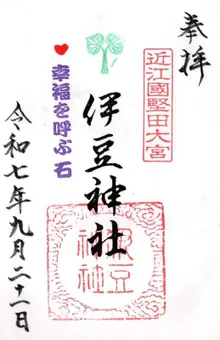 奉拝
近江國堅田大宮
伊豆神社
幸福を呼ぶ石
令和七年九月二十一日
伊豆神社